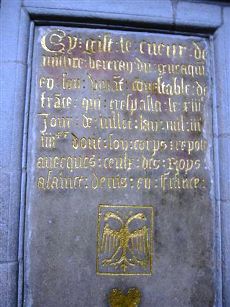 Cy : gist : le cueur de
missire bertran du gueaqui
en son vivāt conestable de
frāce qui trespassa le xiiie
jour de juillet lan mil iiie
iiiixx dont son corps repose
avecques ceulx des Roys
a sainct denis en france